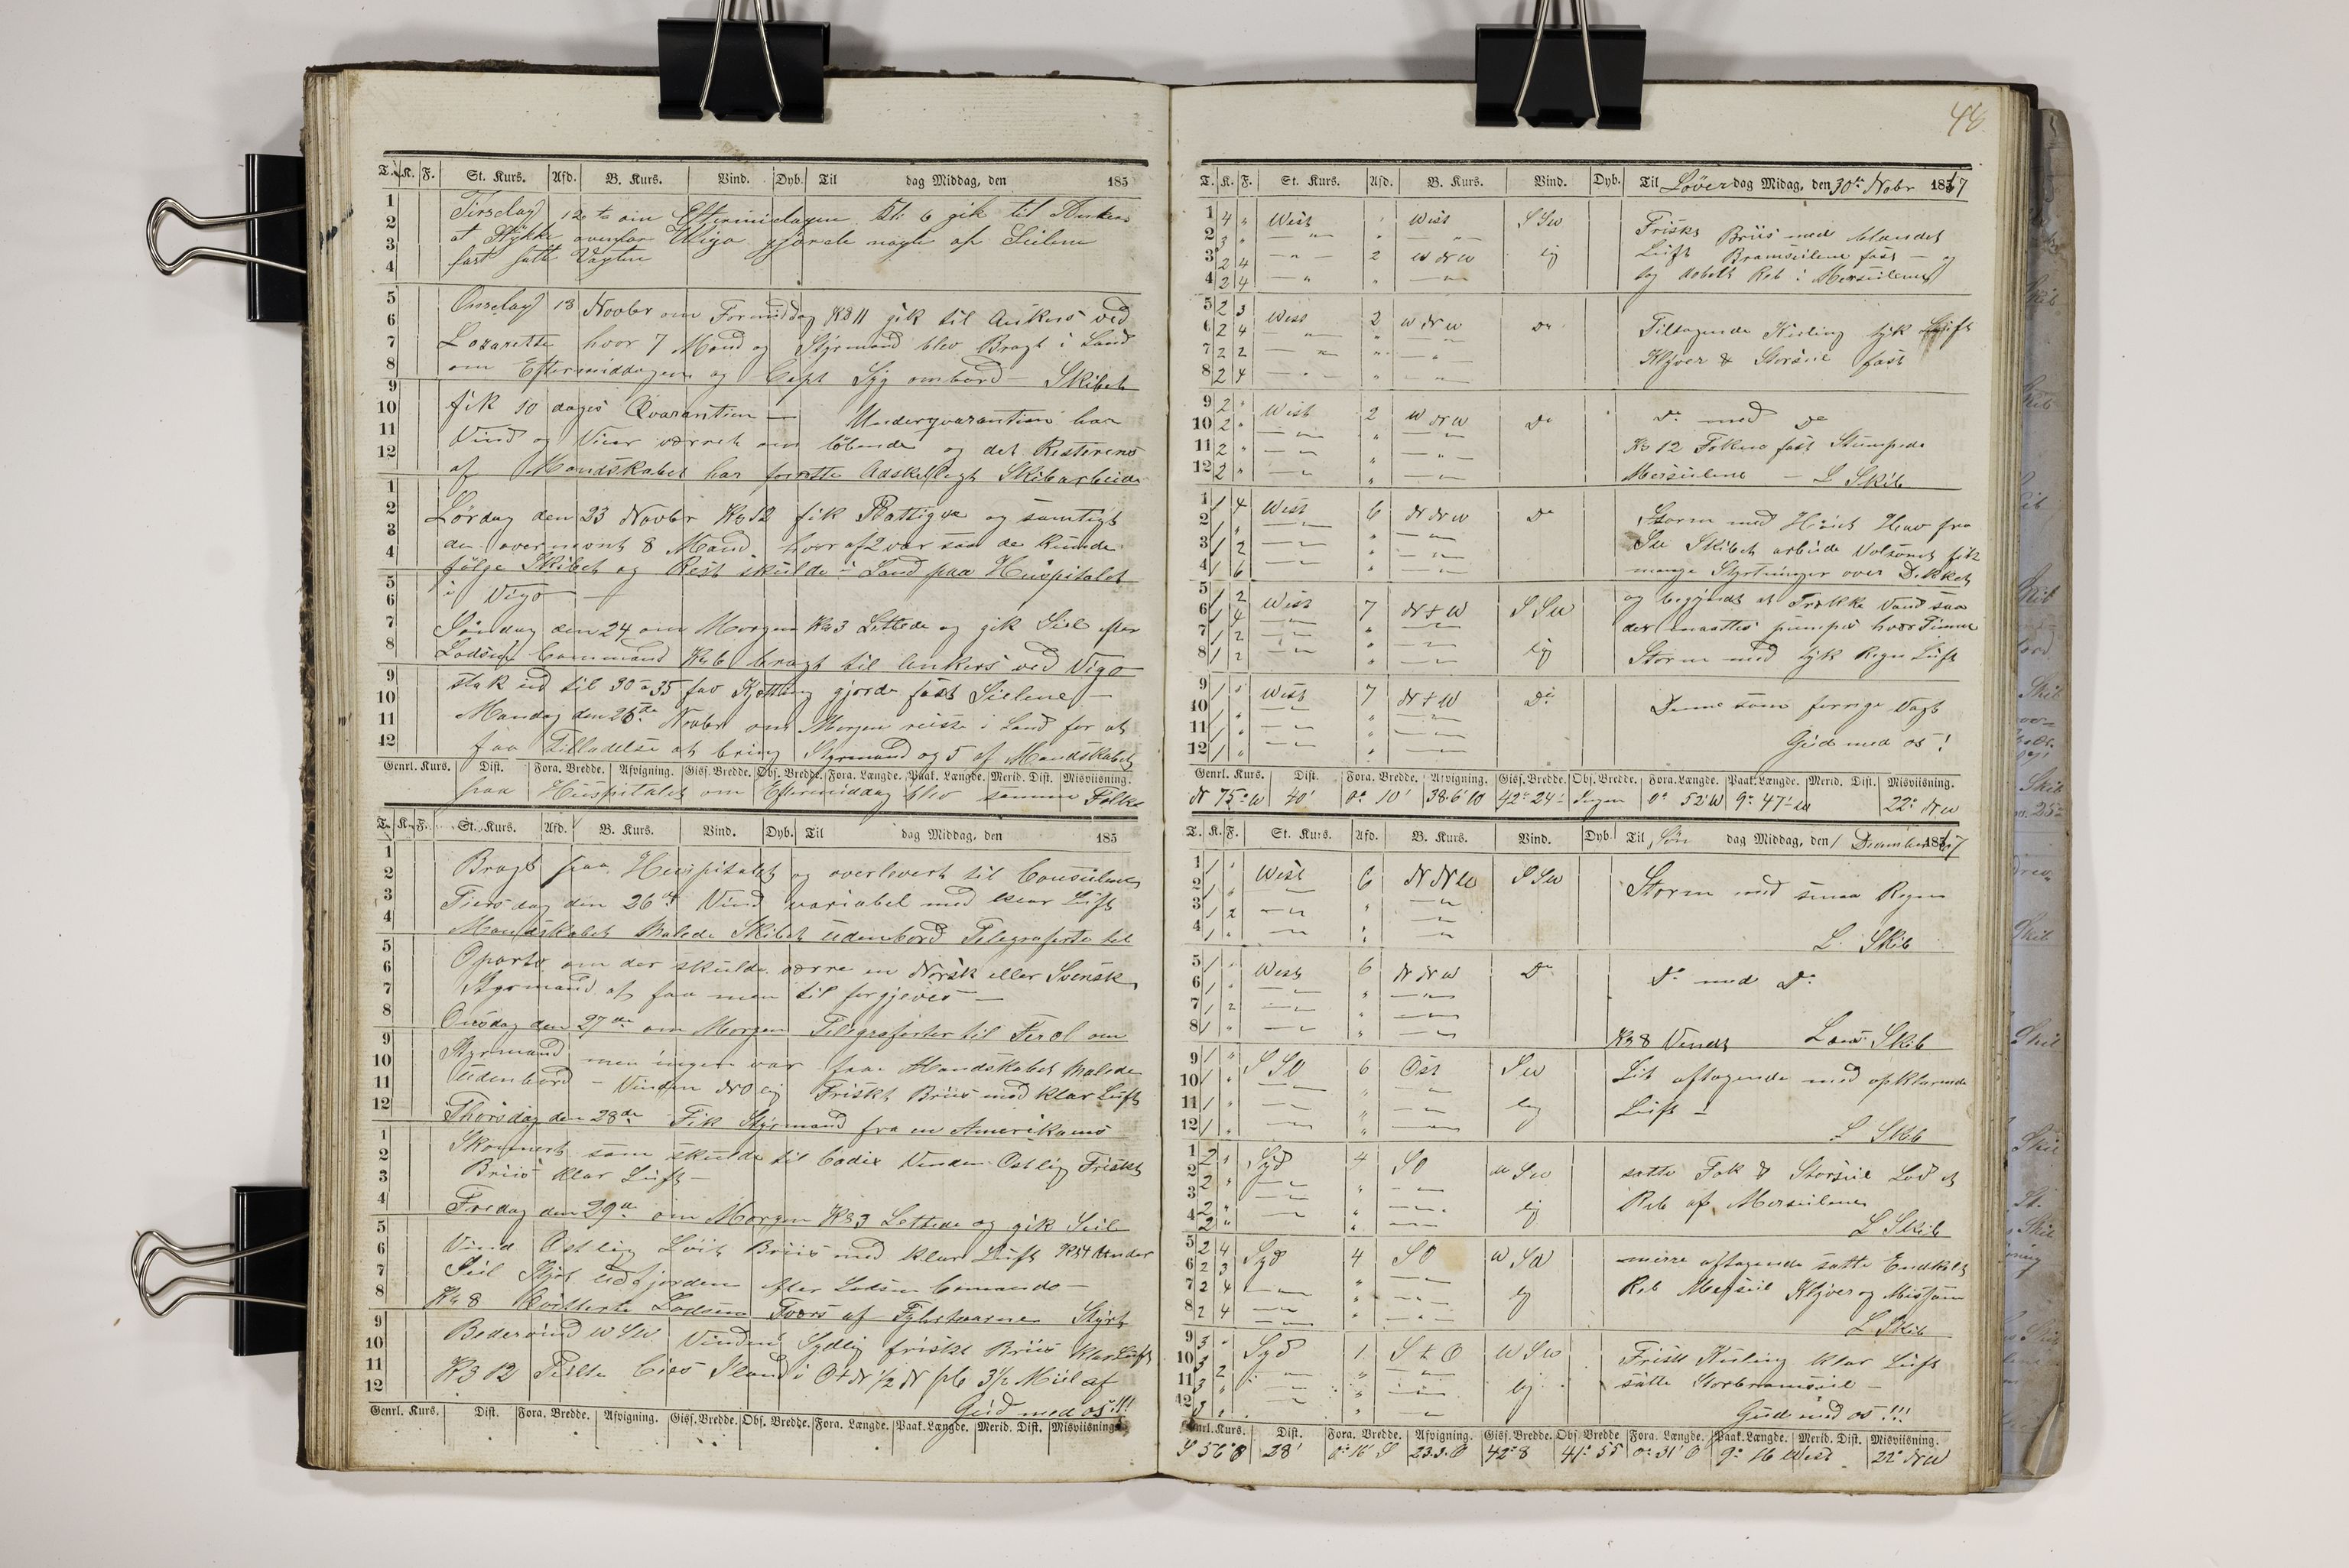 T. K. F. St. Kurs. Afd. B. Kurs. Vind. Dyb. Til dag Middag, den 185
Tirsdag 12te om Eftermidagen Kl: 6 gik til Ankers
et Stykke ovenfor Vigo gjorde nogle af Seilene
fast satte Vagten
Onsdag 13 Novbr om Formiddag Kl 11 gik til Ankers ved
Lazarette hvor 7 Mand og Styrmand blev Bragt i Land
om Eftermiddagen og Capt Syg ombord – Skibet
fik 10 dages Qvarantien — Underqvarantien har
Vind og Veier værret om löbende og det Resterens
af Mandskabet har forrette Adskelligt Skibarbeide
Lördag den 23 Novbr Kl 12 fik Prattique og samtigt
den overnevnt 8 Mand hvor af 2 var saa de kunde
følge Skibet og Rest skulde i Land paa Huspitalet
i Vigo —
Söndag den 24 om Morgen Kl 3 Lettede og gik Seil efter
Lodsens Command Kl 6 bragt til Ankers ved Vigo
stak ud til 30 a 35 fav Kjetting gjorde fast Seilene –
Mandag den 25de Novbr om Morgen reiste i Land for at
faa Tilladelse at bring Styrmand og 5 af Mandskabet
Genrl. Kurs. Dist. Fora. Bredde. Afvigning. Gisf. Bredde. Obs. Bredde. Fora. Længde. Paak. Længde. Merid. Dist. Misviisning.
paa Huspitalet om Eftermiddag blev samme Folke
T. K. F. St. Kurs. Afd. B. Kurs. Vind. Dyb. Til dag Middag, den 185
Bragt paa Huspitalet og overlevert til Consulens
Tiersdag den 26de Vind variabel med klar Luft
Mandskabet Malede Skibet udenbord Telegraferte til
Oporto om der skulde værre en Norsk eller Svensk
Styrmand at faa men til forgjeves —
Onsdag den 27de om Morgen Telegraferter til Ferol om
Styrmand men ingen var faae Mandskabet Malede
Udenbord – Vinden NO lig Friskt Briis med klar Luft
Thorsdag den 28de Fik Styrmand fra en Amerikansk
Skonnert som skulde til Cadix Vinden Ostlig Friskt
Briis klar Luft –
Fredag den 29de om Morgen Kl 3 Lettede og gik Seil
Vind Ostlig Löit Briis med klar Luft Kl 4 Under
Seil Styrt Udfjorden efter Lodsen Comando —
Kl 8 Qvitterte Lodsen Tværs af Styrt
Bedevind WSW. Vinden Sydlig friskt Briis klar Luft
Kl 12 Peilte Cies Iland i O+N ½ N paa 3½ Miil af
Gud med os!!!
Genrl. Kurs. Dist. Fora. Bredde. Afvigning. Gisf. Bredde. Obs. Bredde. Fora. Længde. Paak. Længde. Merid. Dist. Misviisning.
48
T. K. F. St. Kurs. Afd. B. Kurs. Vind. Dyb. Til Löverdag Midag, den 30te Nobr 1867
1 4 " West " West SSW Friskt Briis med blandet
2 3 " Luft Bramseilene fast – og
3 2 4 2 WNW lig
4 2 4 tog dobelt Reb i Merseilene
5 2 3 West 2 WNW Do Tiltagende Kuling tyk Luft
6 2 4
7 2 2 Klyver & Storseil fast
8 2 4
9 2 " West 2 WNW Do Do med Do
10 2 " Kl 12 Fokken fast Stumpede
11 2 "
12 2 " Merseilene – L Skib
1 1 4 West 6 NNW Do Storm med Höit Hav fra
2 1 " SW Skibet arbeide Volsomt fik
3 1 2
4 1 6 mange Styrtninger over Dækket
5 1 2 West 7 N+W SSW og begyndt at Trække Vand saa
6 1 4 der maattes pumpes hver Timme
7 1 2
8 1 2 lig Storm med tyk Regn Luft
9 1 " West 7 N+W Do Denne som forrige Vagt
10 1 "
11 1 " Gud med os!
12 1 "
Genrl. Kurs. Dist. Fora. Bredde. Afvigning. Gisf. Bredde. Obs. Bredde. Fora. Længde. Paak. Længde. Merid. Dist. Misviisning.
N 75° W 40' 0° 10' 38.6' W 42° 24' Ingen 0° 52' W 9° 47' W 22° NW
T. K. F. St. Kurs. Afd. B. Kurs. Vind. Dyb. Til Sön dag Middag, den 1 December 1867
1 1 " West 6 NNW SSW Storm med smaa Regn
2 1 "
3 1 2
4 1 " L. Skib
5 1 " West 6 NNW Do Do med Do
6 1 "
7 1 2
8 1 " Kl 8 Vendt Lens Skib
9 1 " SSO 6 Ost SW Lit aftagende med opklarende
10 1 "
11 1 " lig Luft –
12 1 " L Skib
1 2 " Syd 4 SO WSW satte Fok & Storseil Lod et
2 2 "
3 2 " Reb af Merseilene
4 2 " lig L Skib
5 2 4 Syd 4 SO WSW mere aftagende satte Enkelt
6 2 3
7 2 4 lig Reb Merseil Klyver og Mesjan
8 2 4 L Skib
9 3 " Syd 1 S+O WSW Friskt Kuling klar Luft
10 3 2
11 3 " lig satte Storbramseil –
12 3 " Gud med os!!!
Genrl. Kurs. Dist. Fora. Bredde. Afvigning. Gisf. Bredde. Obs. Bredde. Fora. Længde. Paak. Længde. Merid. Dist. Misviisning.
S 56° O 28' 0° 16 S 23.3. O 42° 8 41° 55 0° 31' O 9° 16 West 22° NW